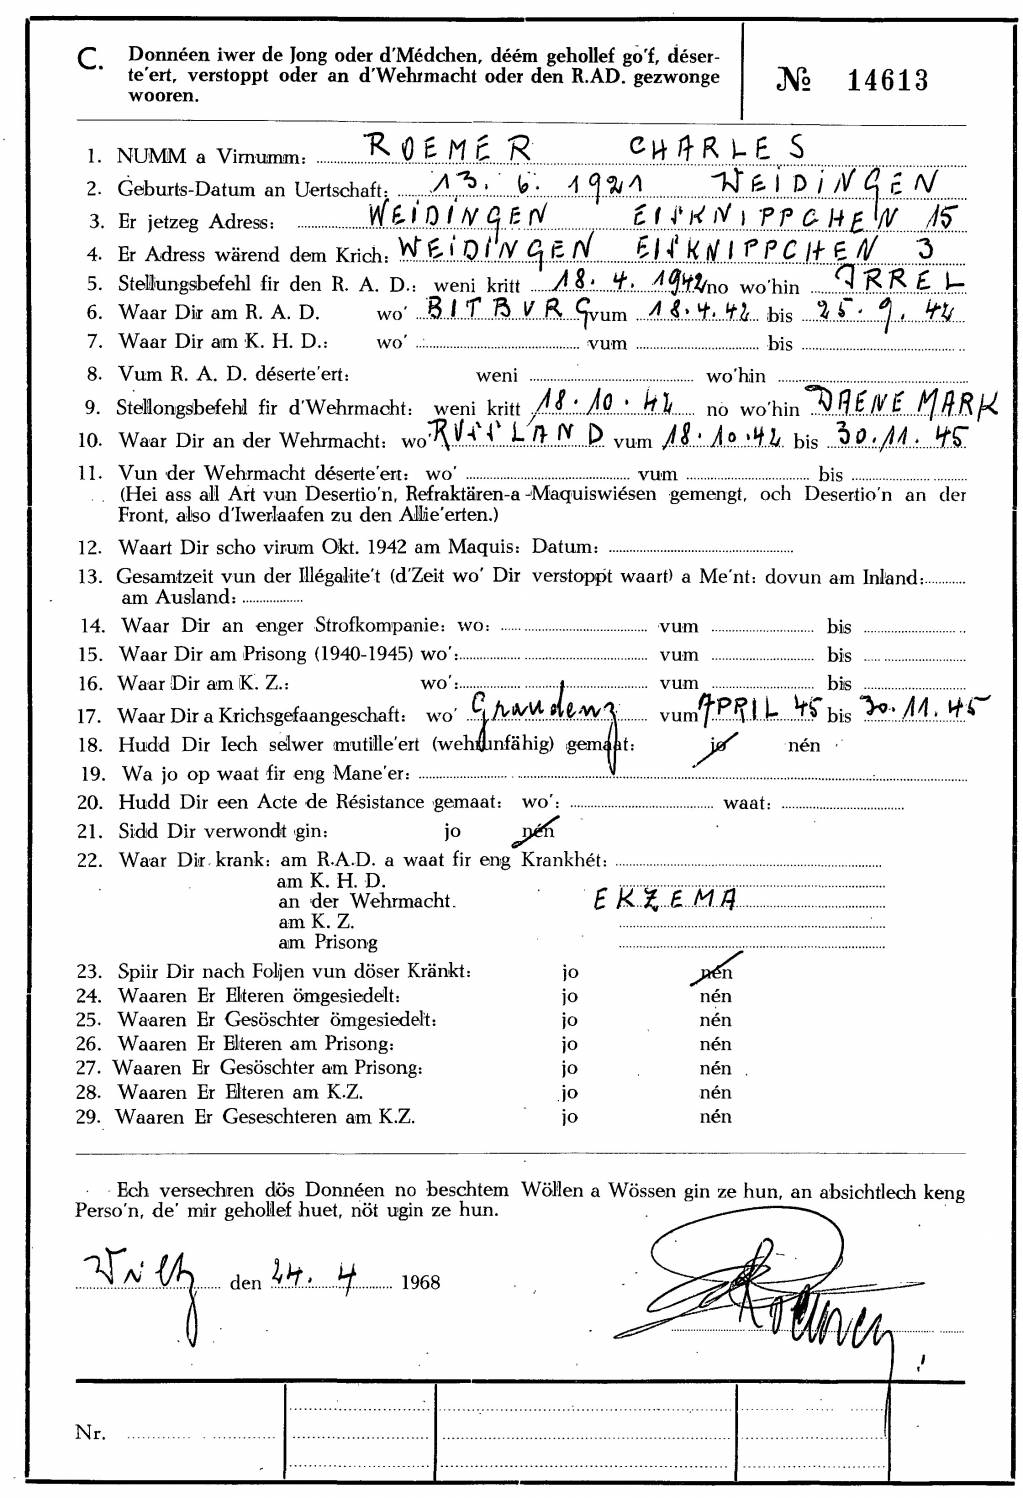 C. Donnéen iwer de Jong oder d'Médchen, déém gehollef go'f, déser-
te'ert, verstoppt oder an d'Wehrmacht oder den R.AD. gezwonge
wooren.
№ 14613
1. NUMM a Virnumm: ROEMER CHARLES
2. Geburts-Datum an Uertschaft: 13. 6. 1921 WEIDINGEN
3. Er jetzeg Adress: WEIDINGEN EISKNIPPCHEN 15
4. Er Adress wärend dem Krich: WEIDINGEN EISKNIPPCHEN 3
5. Stellungsbefehl fir den R. A. D.: weni kritt 18. 4. 1942 no wo'hin IRREL
6. Waar Dir am R. A. D. wo' BITBURG vum 18.4.42 bis 25. 9. 42
7. Waar Dir am K. H. D.: wo' vum bis
8. Vum R. A. D. déserte'ert: weni wo'hin
9. Stellongsbefehl fir d'Wehrmacht: weni kritt 18.10.42 no wo'hin DAENEMARK
10. Waar Dir an der Wehrmacht: wo' RUSSLAND vum 18.10.42 bis 30.11.45
11. Vun der Wehrmacht déserte'ert: wo' vum bis
(Hei ass all Art vun Desertio'n, Refraktären-a-Maquiswiésen gemengt, och Desertio'n an der
Front, also d'Iwerlaafen zu den Allie'erten.)
12. Waart Dir scho virum Okt. 1942 am Maquis: Datum:
13. Gesamtzeit vun der Illégalite't (d'Zeit wo' Dir verstoppt waart) a Me'nt: dovun am Inland:
am Ausland:
14. Waar Dir an enger Strofkompanie: wo: vum bis
15. Waar Dir am Prisong (1940-1945) wo': vum bis
16. Waar Dir am K. Z.: wo': vum bis
17. Waar Dir a Krichsgefaangeschaft: wo' Graudenz vum APRIL 45 bis 30.11.45
18. Hudd Dir Iech selwer mutille'ert (wehrunfähig) gemaat: jo nén
19. Wa jo op waat fir eng Mane'er:
20. Hudd Dir een Acte de Résistance gemaat: wo': waat:
21. Sidd Dir verwondt gin: jo nén
22. Waar Dir krank: am R.A.D. a waat fir eng Krankhét:
am K. H. D.
an der Wehrmacht. EKZEMA
am K. Z.
am Prisong
23. Spiir Dir nach Foljen vun döser Kränkt: jo nén
24. Waaren Er Elteren ömgesiedelt: jo nén
25. Waaren Er Gesöschter ömgesiedelt: jo nén
26. Waaren Er Elteren am Prisong: jo nén
27. Waaren Er Gesöschter am Prisong: jo nén
28. Waaren Er Elteren am K.Z. jo nén
29. Waaren Er Geseschteren am K.Z. jo nén
Ech versechren dös Donnéen no beschtem Wöllen a Wössen gin ze hun, an absichtlech keng
Perso'n, de' mir gehollef huet, nöt ugin ze hun.
Wiltz den 24. 4 1968
Roemer
Nr.